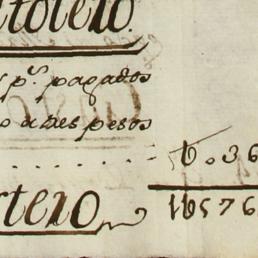 tolero
pº pagados
o a tres pesos
6.036
rtero 16576